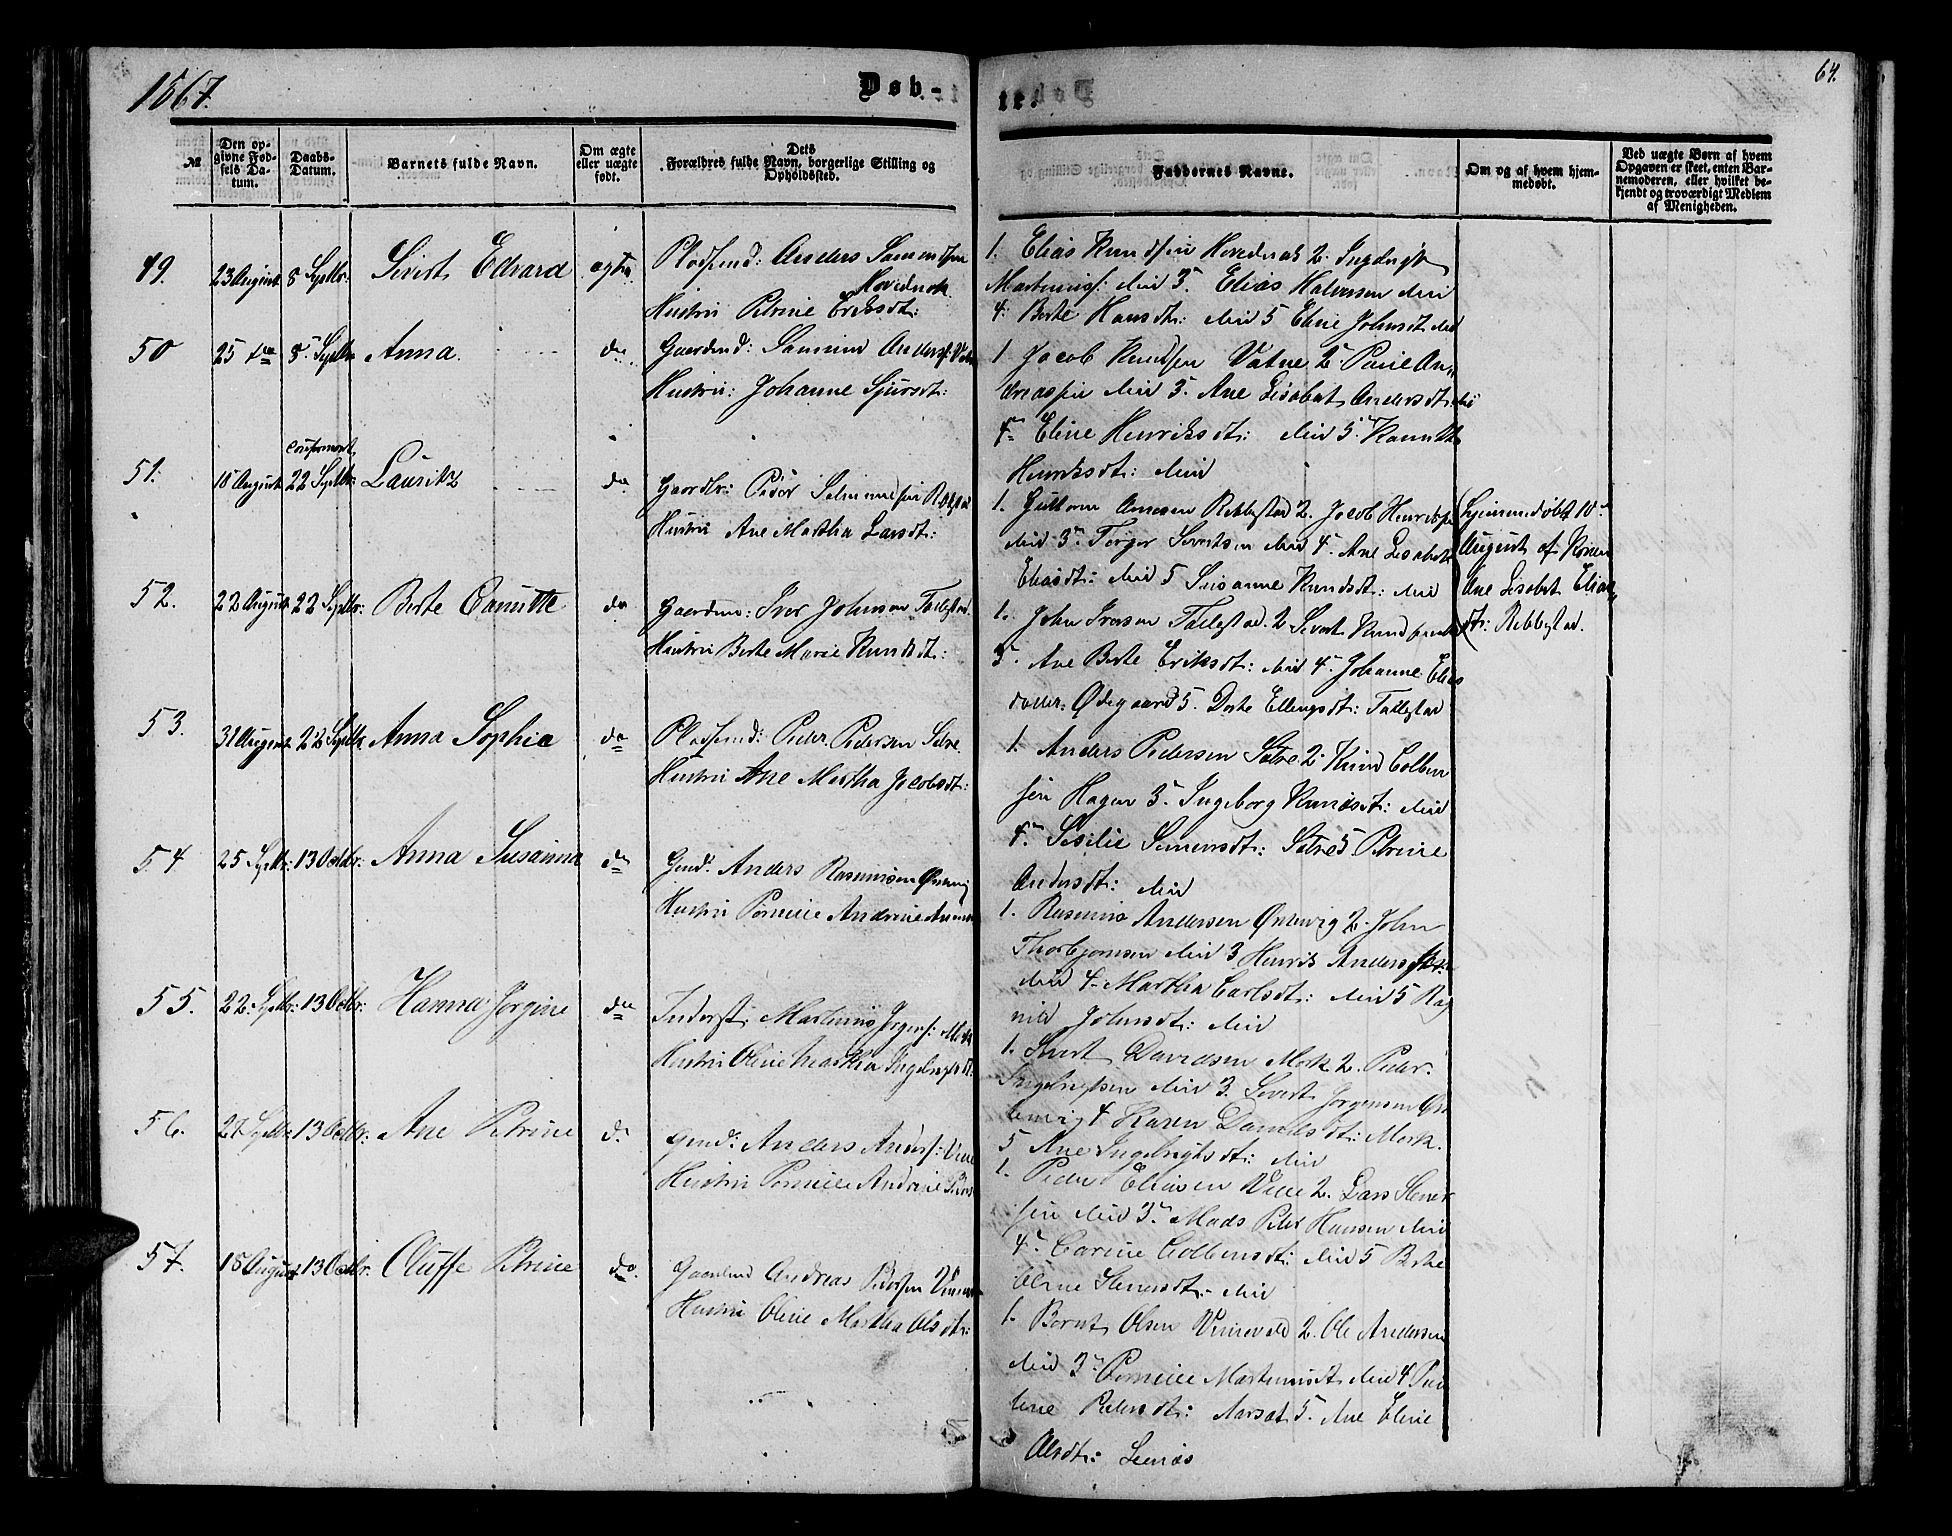 1867.
Døb-
te.
64.
№
Den op-
givne Fød-
sels Da-
tum.
Daabs-
Datum.
Barnets fulde Navn.
Om ægte
eller uægte
født.
Dets
Forældres fulde Navn, borgerlige Stilling og
Opholdssted.
Faddernes Navne.
Om og af hvem hjem-
medøbt.
Ved uægte Børn af hvem
Opgaven er skeet, enten Bar-
nemoderen, eller hvilket be-
kjendt og troværdigt Medlem
af Menigheden.
49. 23 August 8 Septbr: Sivert Edvard ægte
Pladsmd: Anders Samundsen
Hovednak
Hustru Petrine Eriksdt:
1. Elias Knudsen Hovednak 2. Ingebrigt
Martinus: ibid 3. Elias Halvorsen ibid
4. Berte Hansdt: ibid 5 Eline Johnsdt ibid
50 25 do 8. Septbr Anna. do
Gaardmd: Samund Anders: Vatne
Hustru: Johanne Sjursdt:
1 Jacob Knudsen Vatne 2. Paul An-
dreassen ibid 3. Ane Lisabet Andersdt ibid
4. Eline Henriksdt: ibid 5. Kanutte
Henriksdt: ibid
51. 10 August 22 Septbr: Lauritz do
confirmert
Gaardbr: Peder Rebbestad
Hustru Ane Martha Larsdt:
1. Guttorm Arnesen Rebbestad 2. Jacob Henriks:
ibid 3. Torger Sivertsen ibid 4. Ane Lisabet
Eliasdt: ibid 5 Susanne Knudsdt: ibid
Hjemmedøbt 10
August af Konen
Ane Lisabet Elias-
dt: Rebbestad.
52. 22 August 22 Septbr: Berte Canutte do
Gaardmd: Iver Johnsen Tallestad.
Hustru Berte Marie Knudsdt:
1. John Iversen Tallestad. 2 Sivert Knudsen
3. Ane Berte Eriksdt: ibid 4. Johanne Elias
datter. Ødegaard 5. Dorte Ellingsdt: Tallestad
53. 31 August 22 Septbr Anna Sophia do
Pladsmd: Peder Pedersen Sætre.
Hustru Ane Martha Jacobsdt:
1. Anders Pedersen Sætre 2. Knud Colben
sen Hagen 3. Ingeborg Knudsdt: ibid
4. Sesilie Simensdt: Sætre 5 Petrine
Andersdt: ibid
54 25 Septbr: 13 Octbr: Anna Susanna do
Gmd: Anders Rasmussen Østervig
Hustru Pernille Andrine
1. Rasmus Andersen Østervig 2. John
Thorbjørnsen ibid 3 Henrik Anders
ibid 4. Martha Carlsdt: ibid 5 Rag
nild Johnsdt: ibid
55. 22. Septbr: 13 Octbr: Hanna Jørgine do
Inderst: Martinus Jørgens: Mork
Hustru Oline Martha Ingebrigtsdt:
1. Sivert Davidsen Mork 2. Peder
Ingebrigtsen ibid 3. Sivert Jørgensen Øs
tervig 4 Karen Danielsdt: Mork.
5 Ane Ingebrigtsdt: ibid
56. 27 Septbr 13 Octbr: Ane Petrine do
Gmd: Anders Anders:
Hustru Pernille Andrine
1. Peder Eliasen 2. Lars Stener
sen ibid 3. Mads Peter Hansen ibid
4. Carine Colbensdt: ibid 5 Berte
Oline Stenersdt: ibid
57. 18 August 13 Octbr. Oluffe Petrine do.
Gaardmd Andreas Peders:
Hustru Oline Martha Olsdt:
1. Bernt Olsen Vinevold 2. Ole Andersen
ibid 3. Pernille Martinusdt ibid 4 Pau
line Pedersdt: Aarsæt 5. Ane Eline
Olsdt: